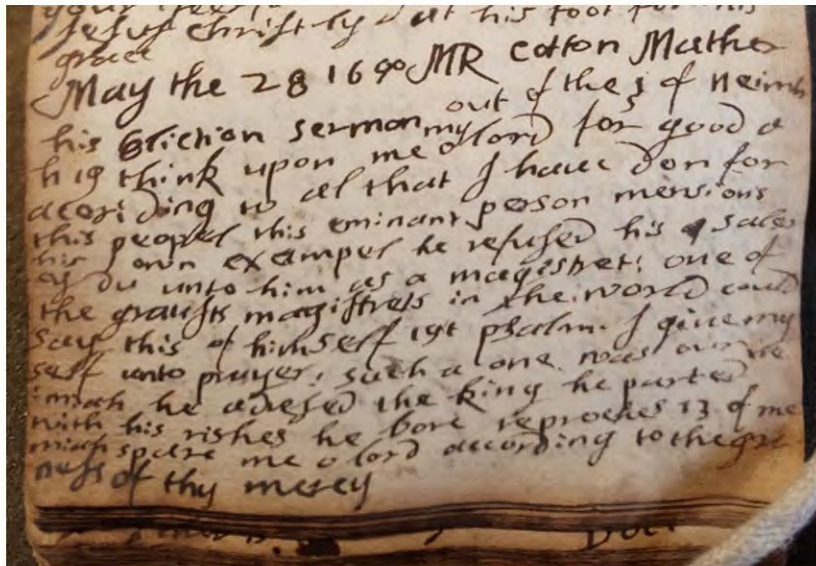 Jesus Christ ly d at his foot for his
grace
May the 28 1690 MR cotton Mather
his Eliction sermon out of the 5 of neimi
h 19 think upon me my o lord for good a
acoriding to al that I haue don for
this peopel this eminant person mensions
his own exampel he refused his sales
as du unto him as a magistret: one of
the graitsts magistrets in the world could
say this of himself 19t psalm. I giue my
self unto prayer: such a one was our ne
imiah he adresed the king he parted
with his rishes he bore reproches 13 of ne
miah spare me o lord according to the gre
ness of thy mercy